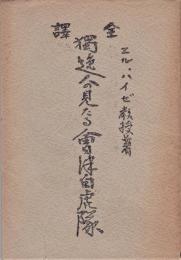 全譯
エル・ハイゼ教授著
獨逸人の見たる會津白虎隊